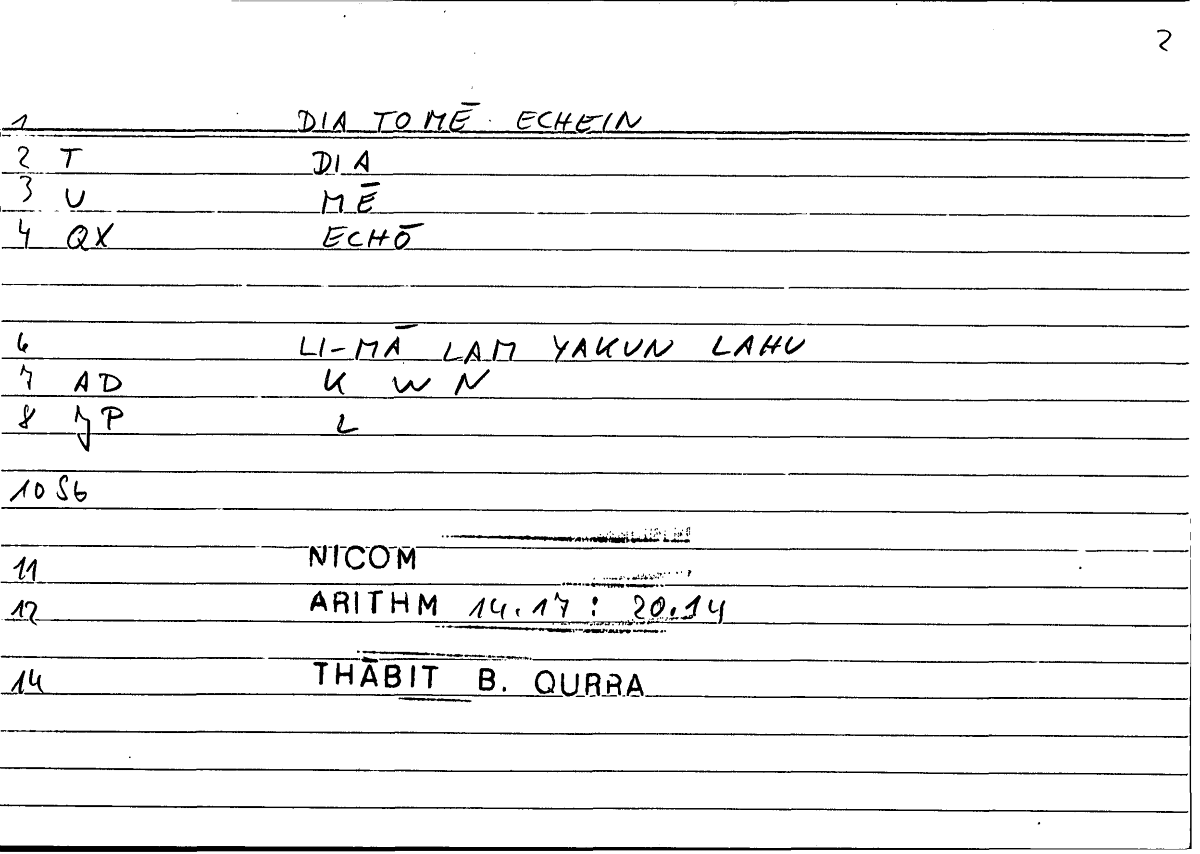 2
1 DIA TO MĒ ECHEIN
2 T DIA
3 U MĒ
4 QX ECHŌ
6 LI-MĀ LAM YAKUN LAHU
7 AD K W N
8 7P L
10 S6
11 NICOM
12 ARITHM 14.17 : 20.14
14 THĀBIT B. QURRA